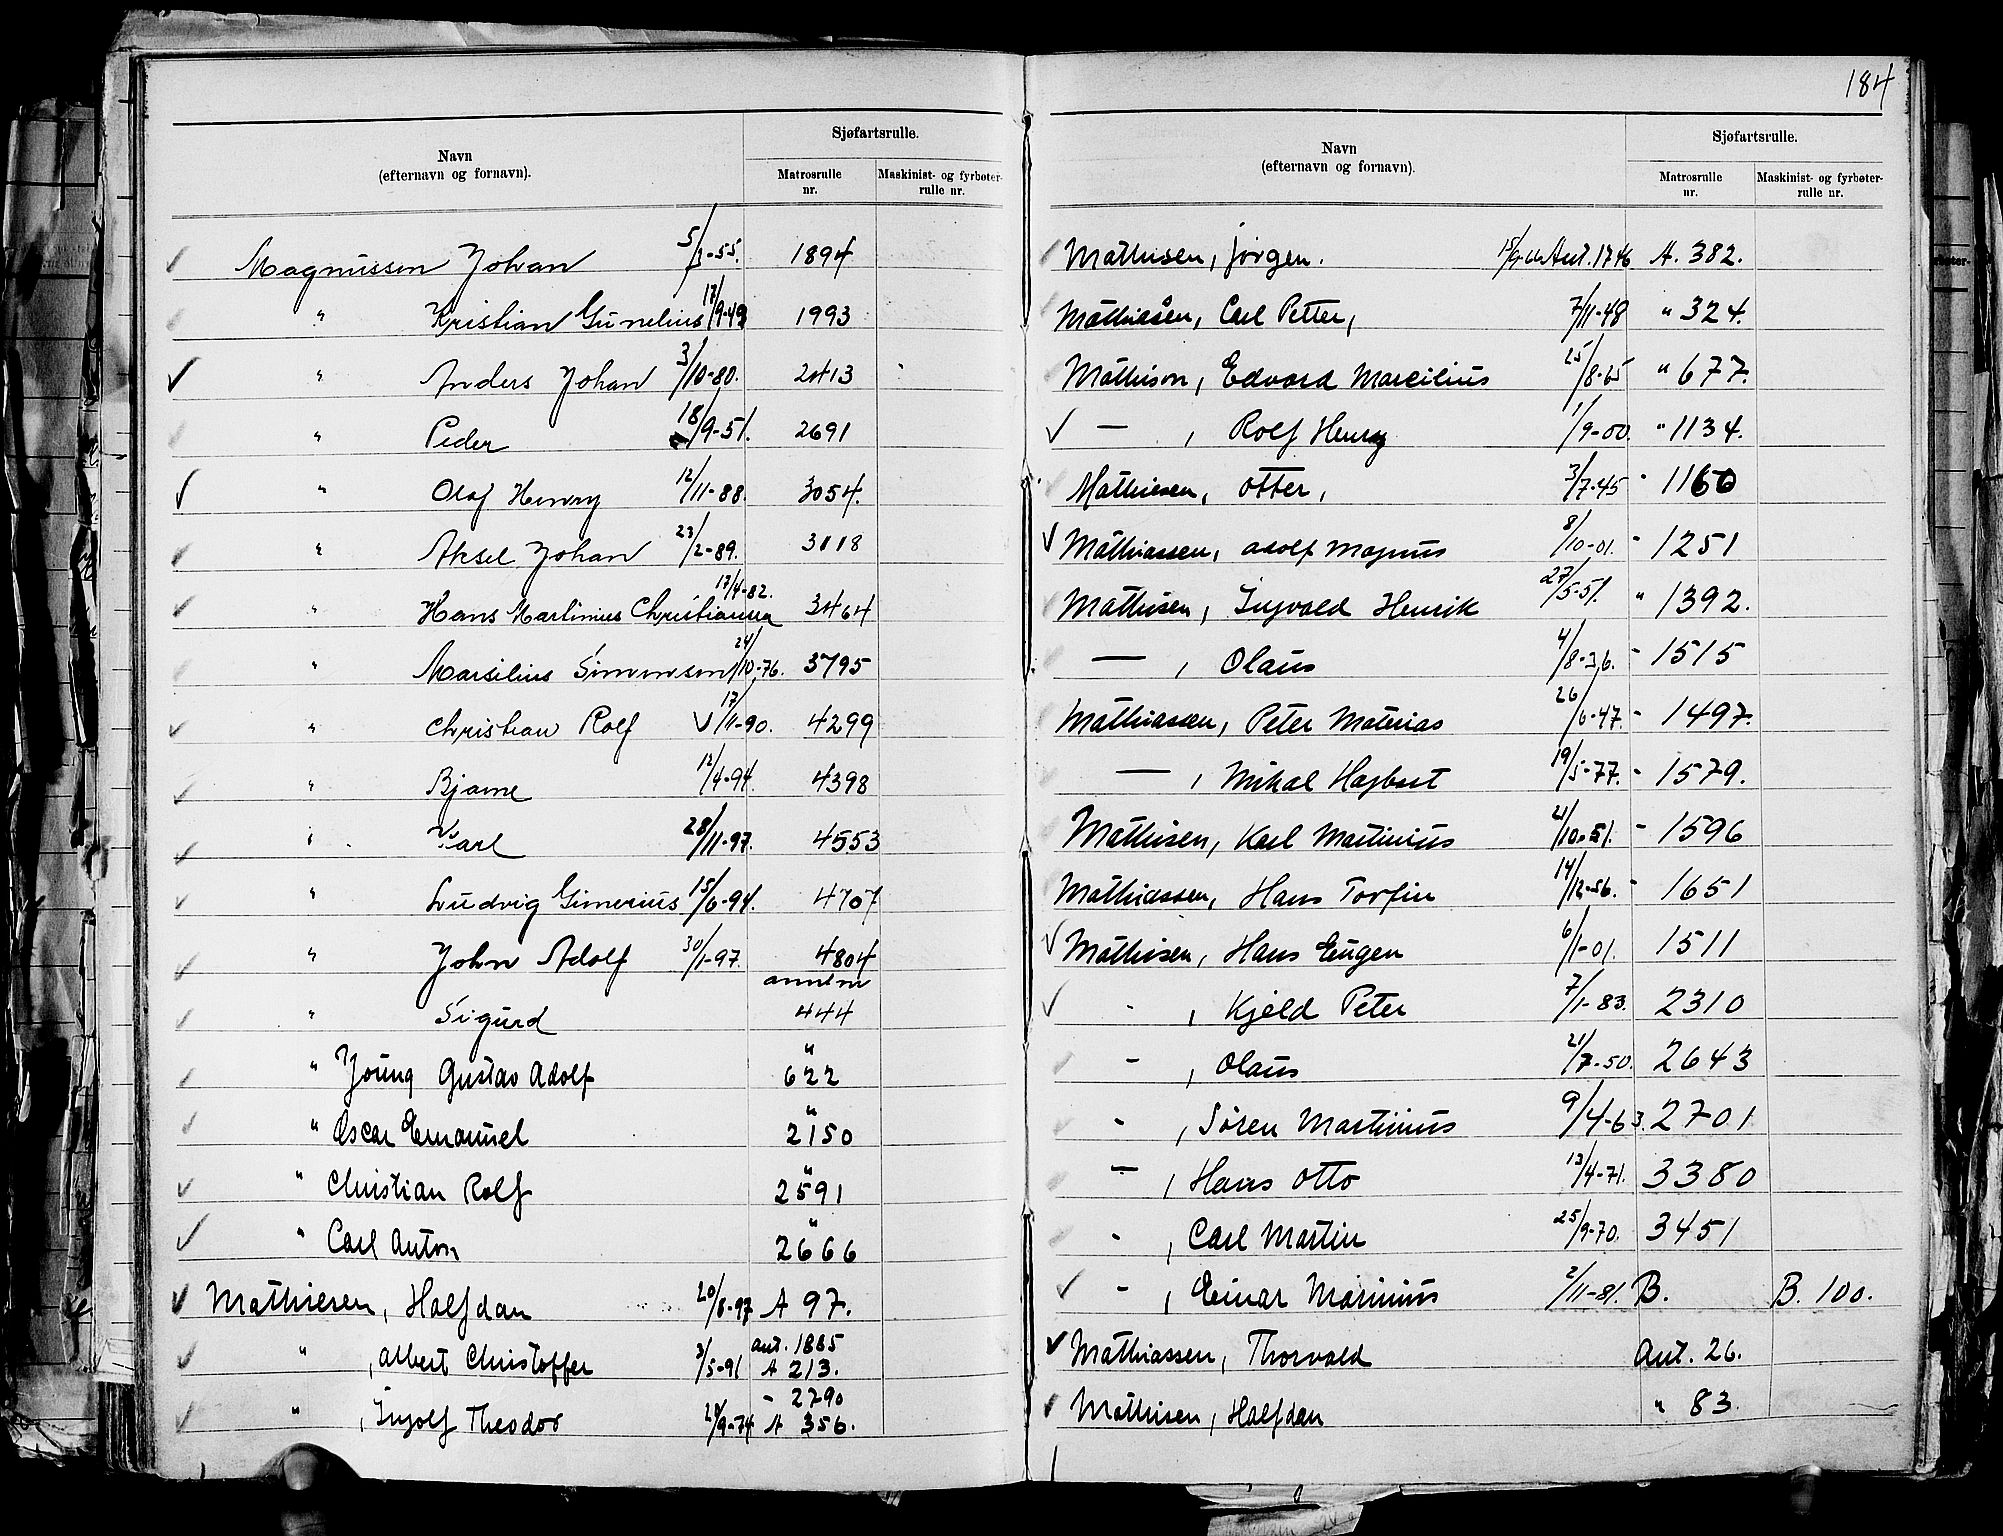 Navn
(efternavn og fornavn).
Sjøfartsrulle.
Matrosrulle
nr.
Maskinist- og fyrbøter-
rulle nr.
Magnussen Johan 5/3-55. 1894
" Kristian Gunelius 17/9-49 1993
" Anders Johan 3/10-80. 2413
" Peder 18/9-51. 2691
" Olaf Henry 12/11-88. 3054.
" Aksel Johan 23/2-89. 3118
" Hans Martinius Christiansen 17/4-82. 3464
" Marsilius Simonsen 24/10-76. 3795
" Christian Rolf 17/11-90. 4299
" Bjarne 12/4-94. 4398
" Karl 28/11-97. 4553
" Ludvig Gimerius 15/6-94. 4707
" John Adolf 30/1-97. 4804
" Sigurd 444
" Young Gustav Adolf " 622
" Oscar Emanuel " 2150
" Christian Rolf " 2591
" Carl Anton " 2666
Mathiesen, Halfdan 20/8-97 A 97.
" , Albert Christoffer 3/5-91 ant. 1885 A 213.
" , Ingolf Theodor 29/9-74 - 2790 A 356.
184
Navn
(efternavn og fornavn).
Sjøfartsrulle.
Matrosrulle
nr.
Maskinist- og fyrbøter-
rulle nr.
Mathisen, Jørgen. Ant. 1746 A. 382.
Mathiasen, Carl Petter, 7/11-48 " 324.
Mathison, Edvard Marcilius 25/8-65 " 677.
— , Rolf Henry 1/9-00. " 1134.
Mathiesen, Otter, 3/7-45 " 1160
Mathiassen, Adolf Magnus 8/10-01. - 1251
Mathisen, Ingvald Henrik 27/5-51. " 1392.
— , Olaus 4/8-36. - 1515
Mathiassen, Peter Mathias 26/6-47. - 1497.
— , Mikal Hagbart 19/5-77. - 1579.
Mathisen, Karl Martinius 21/10-51. - 1596
Mathiassen, Hans Torfin 14/12-56. - 1651
Mathisen, Hans Eugen 6/1-01. 1511
- , Kjeld Peter 7/1-83. 2310
- , Olaus 21/7-50. 2643
- , Søren Martinius 9/4-63. 2701
- , Hans Otto 13/4-71. 3380
- , Carl Martin 25/9-70. 3451
- , Einar Marinius 2/11-81. B. B. 100.
Mathiassen, Thorvald Ant. 26.
Mathisen, Halfdan " 83.